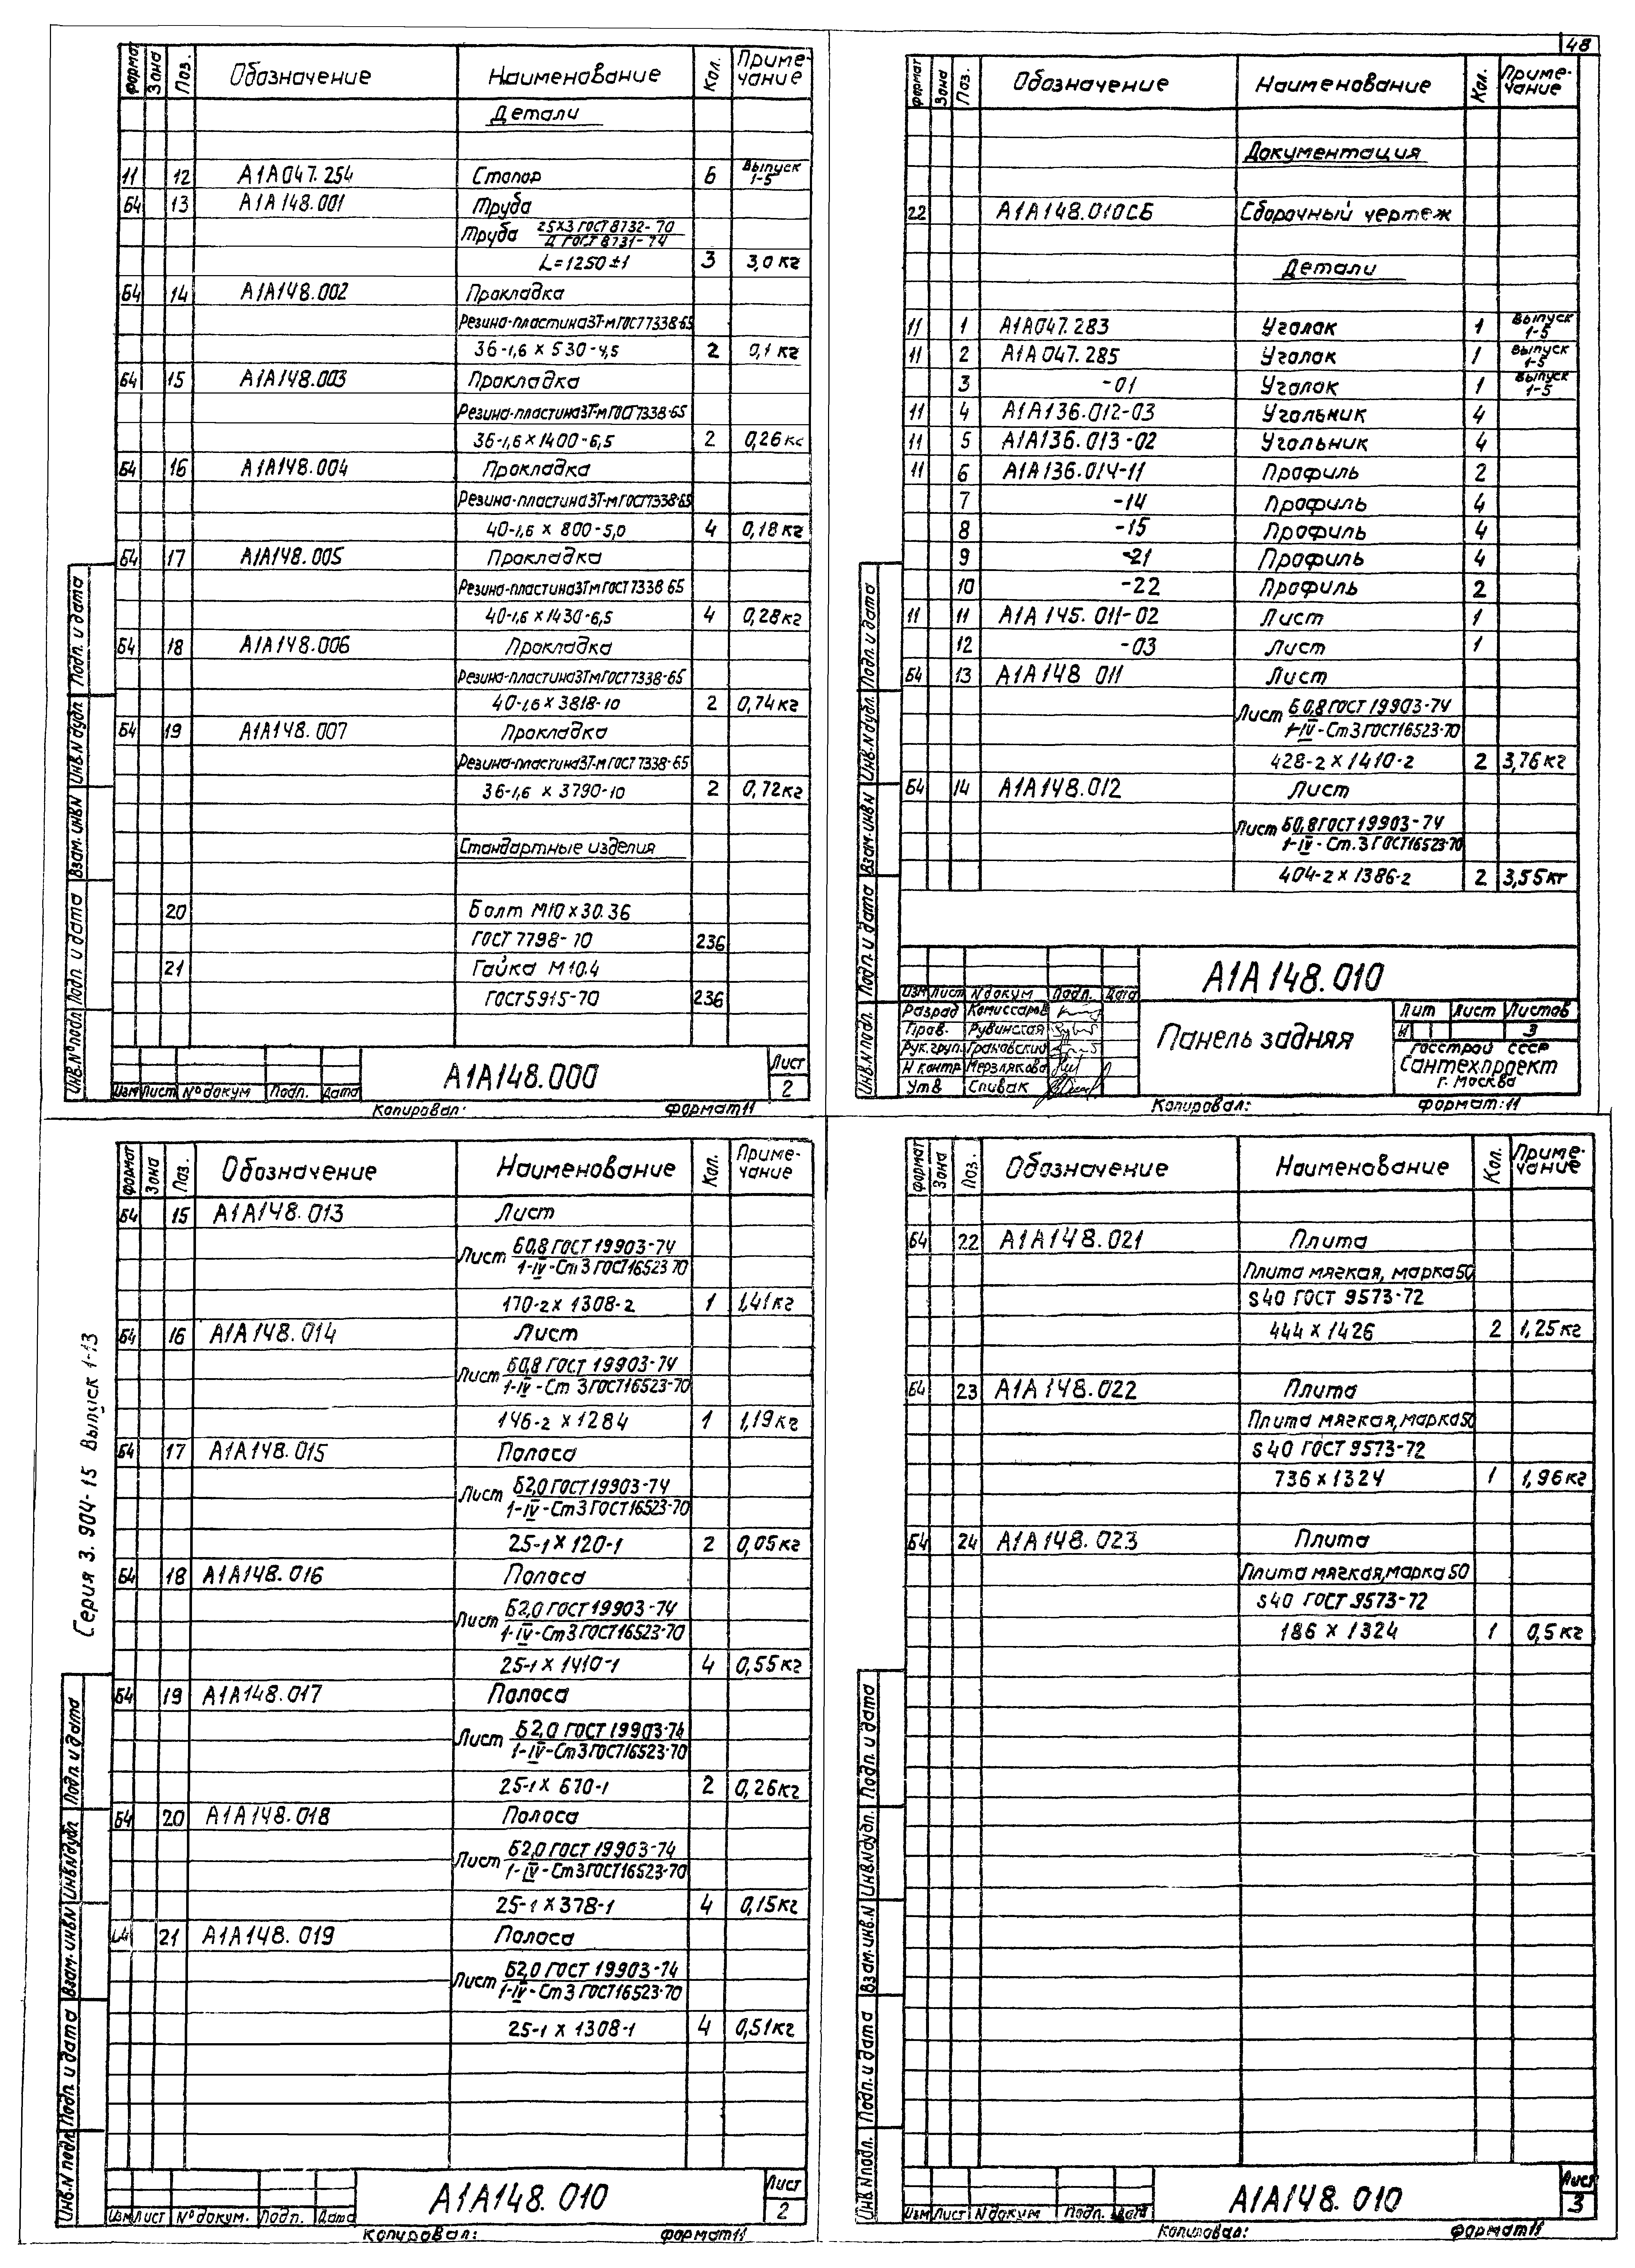 48
формат Зона Поз. Обозначение Наименование Кол. Приме-
чание
Детали
11 12 А1А047.254 Стопор 6 Выпуск
1-5
Б4 13 А1А148.001 Труба
Труба 25х3 ГОСТ 8732-70
Д ГОСТ 8731-74
L=1250±1 3 3,0 кг
Б4 14 А1А148.002 Прокладка
Резина-пластина 3Т-м ГОСТ 7338-65
36-1,6 х 530-4,5 2 0,1 кг
Б4 15 А1А148.003 Прокладка
Резина-пластина 3Т-м ГОСТ 7338-65
36-1,6 х 1400-6,5 2 0,26 кг
Б4 16 А1А148.004 Прокладка
Резина-пластина 3Т-м ГОСТ 7338-65
40-1,6 х 800-5,0 4 0,18 кг
Б4 17 А1А148.005 Прокладка
Резина-пластина 3Т-м ГОСТ 7338-65
40-1,6 х 1430-6,5 4 0,28 кг
Б4 18 А1А148.006 Прокладка
Резина-пластина 3Т-м ГОСТ 7338-65
40-1,6 х 3818-10 2 0,74 кг
Б4 19 А1А148.007 Прокладка
Резина-пластина 3Т-м ГОСТ 7338-65
36-1,6 х 3790-10 2 0,72 кг
Стандартные изделия
20 Болт М10 х 30.36
ГОСТ 7798-70 236
21 Гайка М10.4
ГОСТ 5915-70 236
Инв.№подл Подп. и дата Взам.инв№ Инв.№дубл. Подп. и дата
Изм Лист №докум Подп. Дата
А1А148.000
Лист
2
Копировал: формат 11
формат Зона Поз. Обозначение Наименование Кол. Приме-
чание
Документация
22 А1А148.010СБ Сборочный чертеж
Детали
11 1 А1А047.283 Уголок 1 Выпуск
1-5
11 2 А1А047.285 Уголок 1 Выпуск
1-5
3 -01 Уголок 1 Выпуск
1-5
11 4 А1А136.012-03 Угольник 4
11 5 А1А136.013-02 Угольник 4
11 6 А1А136.014-11 Профиль 2
7 -14 Профиль 4
8 -15 Профиль 4
9 -21 Профиль 4
10 -22 Профиль 2
11 11 А1А145.011-02 Лист 1
12 -03 Лист 1
Б4 13 А1А148 011 Лист
Лист Б 0,8 ГОСТ 19903-74
1-IV-Ст 3 ГОСТ 16523-70
428-2 х 1410-2 2 3,76 кг
Б4 14 А1А148.012 Лист
Лист Б0,8 ГОСТ 19903-74
1-IV-Ст.3 ГОСТ 16523-70
404-2 х 1386-2 2 3,55 кг
Инв.№подл. Подп. и дата Взам.инв№ Инв.№дубл. Подп. и дата
Изм Лист №докум Подп. Дата
Разраб Комиссаров
Пров. Рувинская
Рук.груп. Грановский
Н контр Мерзлякова
Утв Спивак
А1А148.010
Панель задняя
Лит Лист Листов
И 3
Госстрой СССР
Сантехпроект
г. Москва
Копировал: формат: 11
Серия 3.904-15 Выпуск 1-13
формат Зона Поз. Обозначение Наименование Кол. Приме-
чание
Б4 15 А1А148.013 Лист
Лист Б0,8 ГОСТ 19903-74
1-IV-Ст 3 ГОСТ 16523-70
170-2 х 1308-2 1 1,41 кг
Б4 16 А1А148.014 Лист
Лист Б0,8 ГОСТ 19903-74
1-IV-Ст 3 ГОСТ 16523-70
146-2 х 1284 1 1,19 кг
Б4 17 А1А148.015 Полоса
Лист Б2,0 ГОСТ 19903-74
1-IV-Ст 3 ГОСТ 16523-70
25-1 х 120-1 2 0,05 кг
Б4 18 А1А148.016 Полоса
Лист Б2,0 ГОСТ 19903-74
1-IV-Ст 3 ГОСТ 16523-70
25-1 х 1410-1 4 0,55 кг
Б4 19 А1А148.017 Полоса
Лист Б2,0 ГОСТ 19903-74
1-IV-Ст 3 ГОСТ 16523-70
25-1 х 670-1 2 0,26 кг
Б4 20 А1А148.018 Полоса
Лист Б2,0 ГОСТ 19903-74
1-IV-Ст 3 ГОСТ 16523-70
25-1 х 378-1 4 0,15 кг
Б4 21 А1А148.019 Полоса
Лист Б2,0 ГОСТ 19903-74
1-IV-Ст 3 ГОСТ 16523-70
25-1 х 1308-1 4 0,51 кг
Инв.№подл. Подп. и дата Взам.инв№ Инв.№дубл Подп. и дата
Изм Лист №докум. Подп. Дата
А1А148.010
Лист
2
Копировал: формат 11
формат Зона Поз. Обозначение Наименование Кол. Приме-
чание
Б4 22 А1А148.021 Плита
Плита мягкая, марка 50
S40 ГОСТ 9573-72
444 х 1426 2 1,25 кг
Б4 23 А1А148.022 Плита
Плита мягкая, марка 50
S40 ГОСТ 9573-72
736 х 1324 1 1,96 кг
Б4 24 А1А148.023 Плита
Плита мягкая, марка 50
S40 ГОСТ 9573-72
186 х 1324 1 0,5 кг
Инв.№подл. Подп. и дата Взам.инв.№ Инв.№дубл. Подп. и дата
Изм Лист №докум Подп. Дата
А1А148.010
Лист
3
Копировал: формат 11